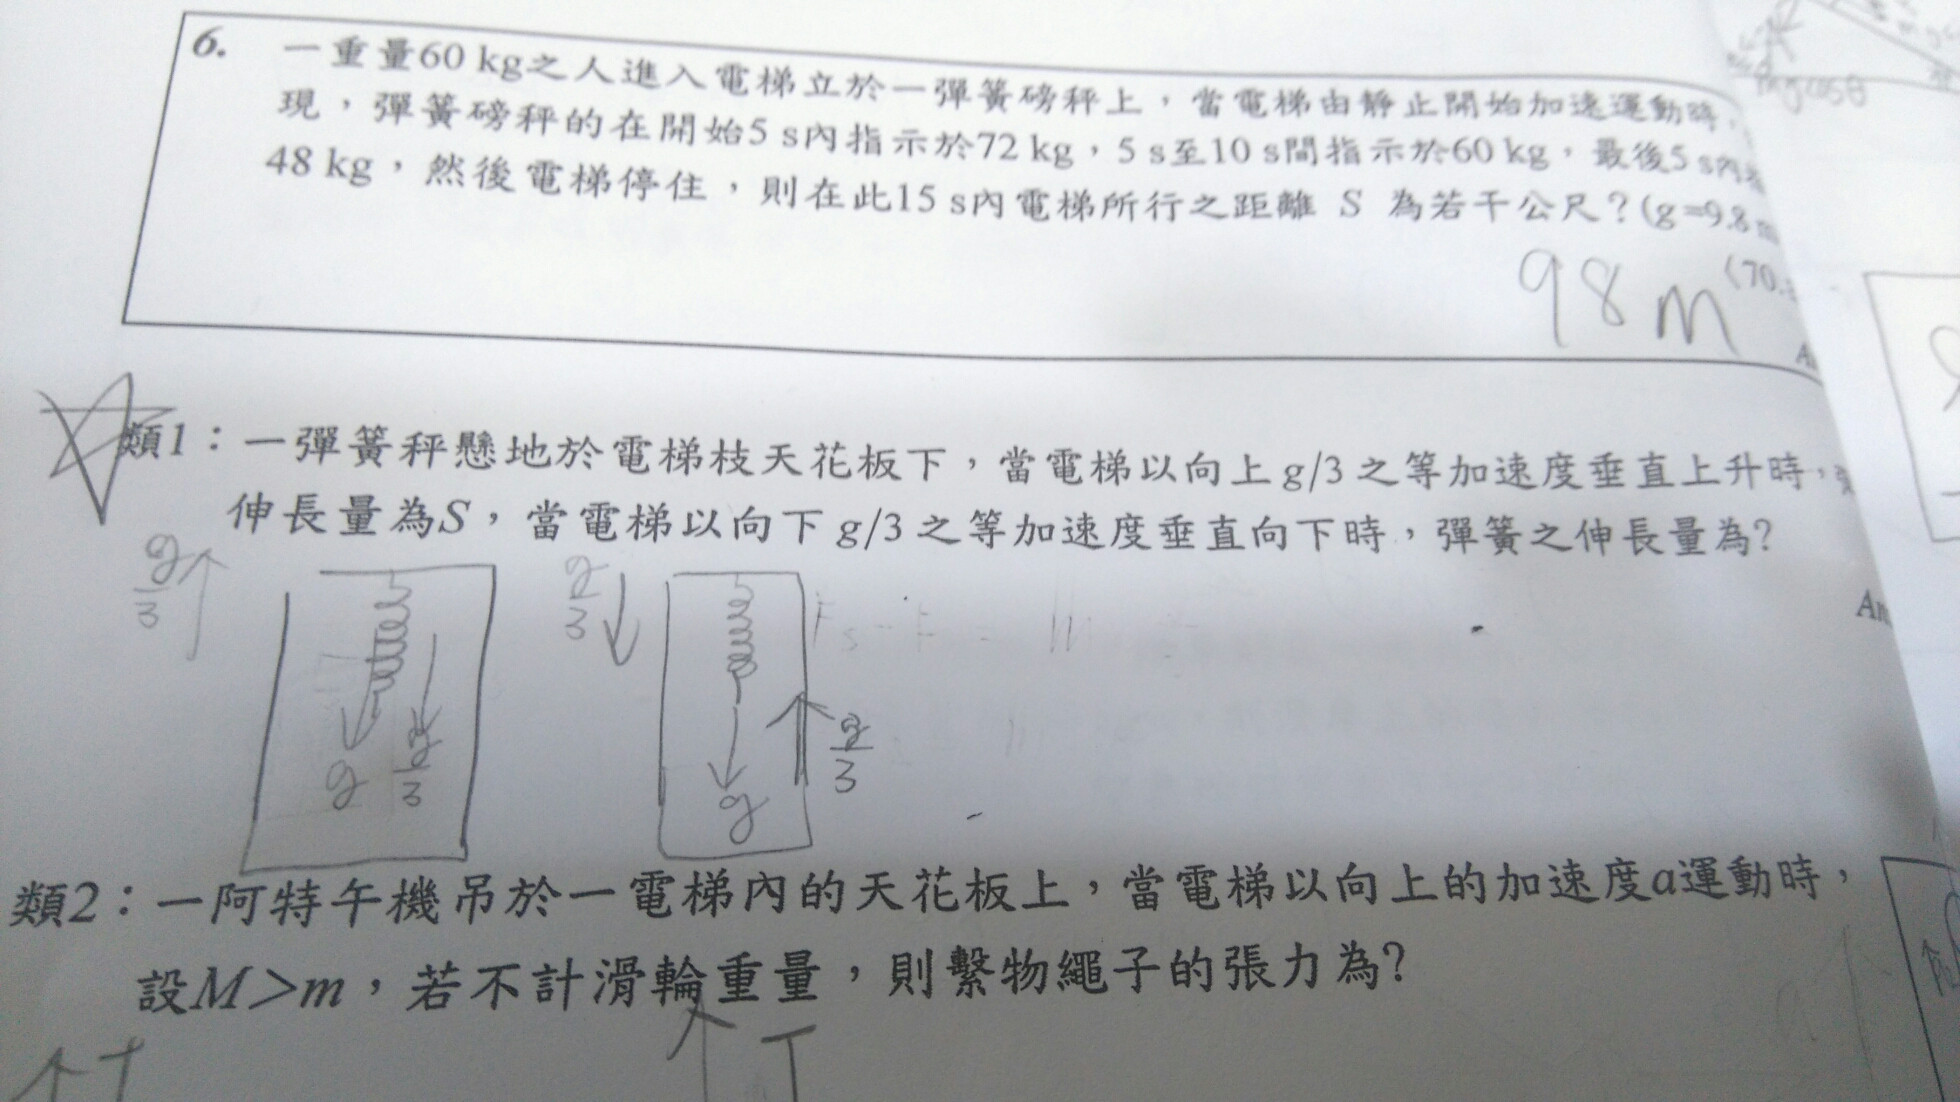 6. 一重量60 kg之人進入電梯立於一彈簧磅秤上，當電梯由靜止開始加速運動時，
現，彈簧磅秤的在開始5 s內指示於72 kg，5 s至10 s間指示於60 kg，最後5 s內
48 kg，然後電梯停住，則在此15 s內電梯所行之距離 S 為若干公尺？(g=9.8
98 m
(70.
類1：一彈簧秤懸地於電梯枝天花板下，當電梯以向上 g/3 之等加速度垂直上升時，
伸長量為S，當電梯以向下 g/3 之等加速度垂直向下時，彈簧之伸長量為?
g/3
g
g/3
g/3
g
g/3
An
類2：一阿特午機吊於一電梯內的天花板上，當電梯以向上的加速度a運動時，
設M>m，若不計滑輪重量，則繫物繩子的張力為?
T
T
mgcosθ